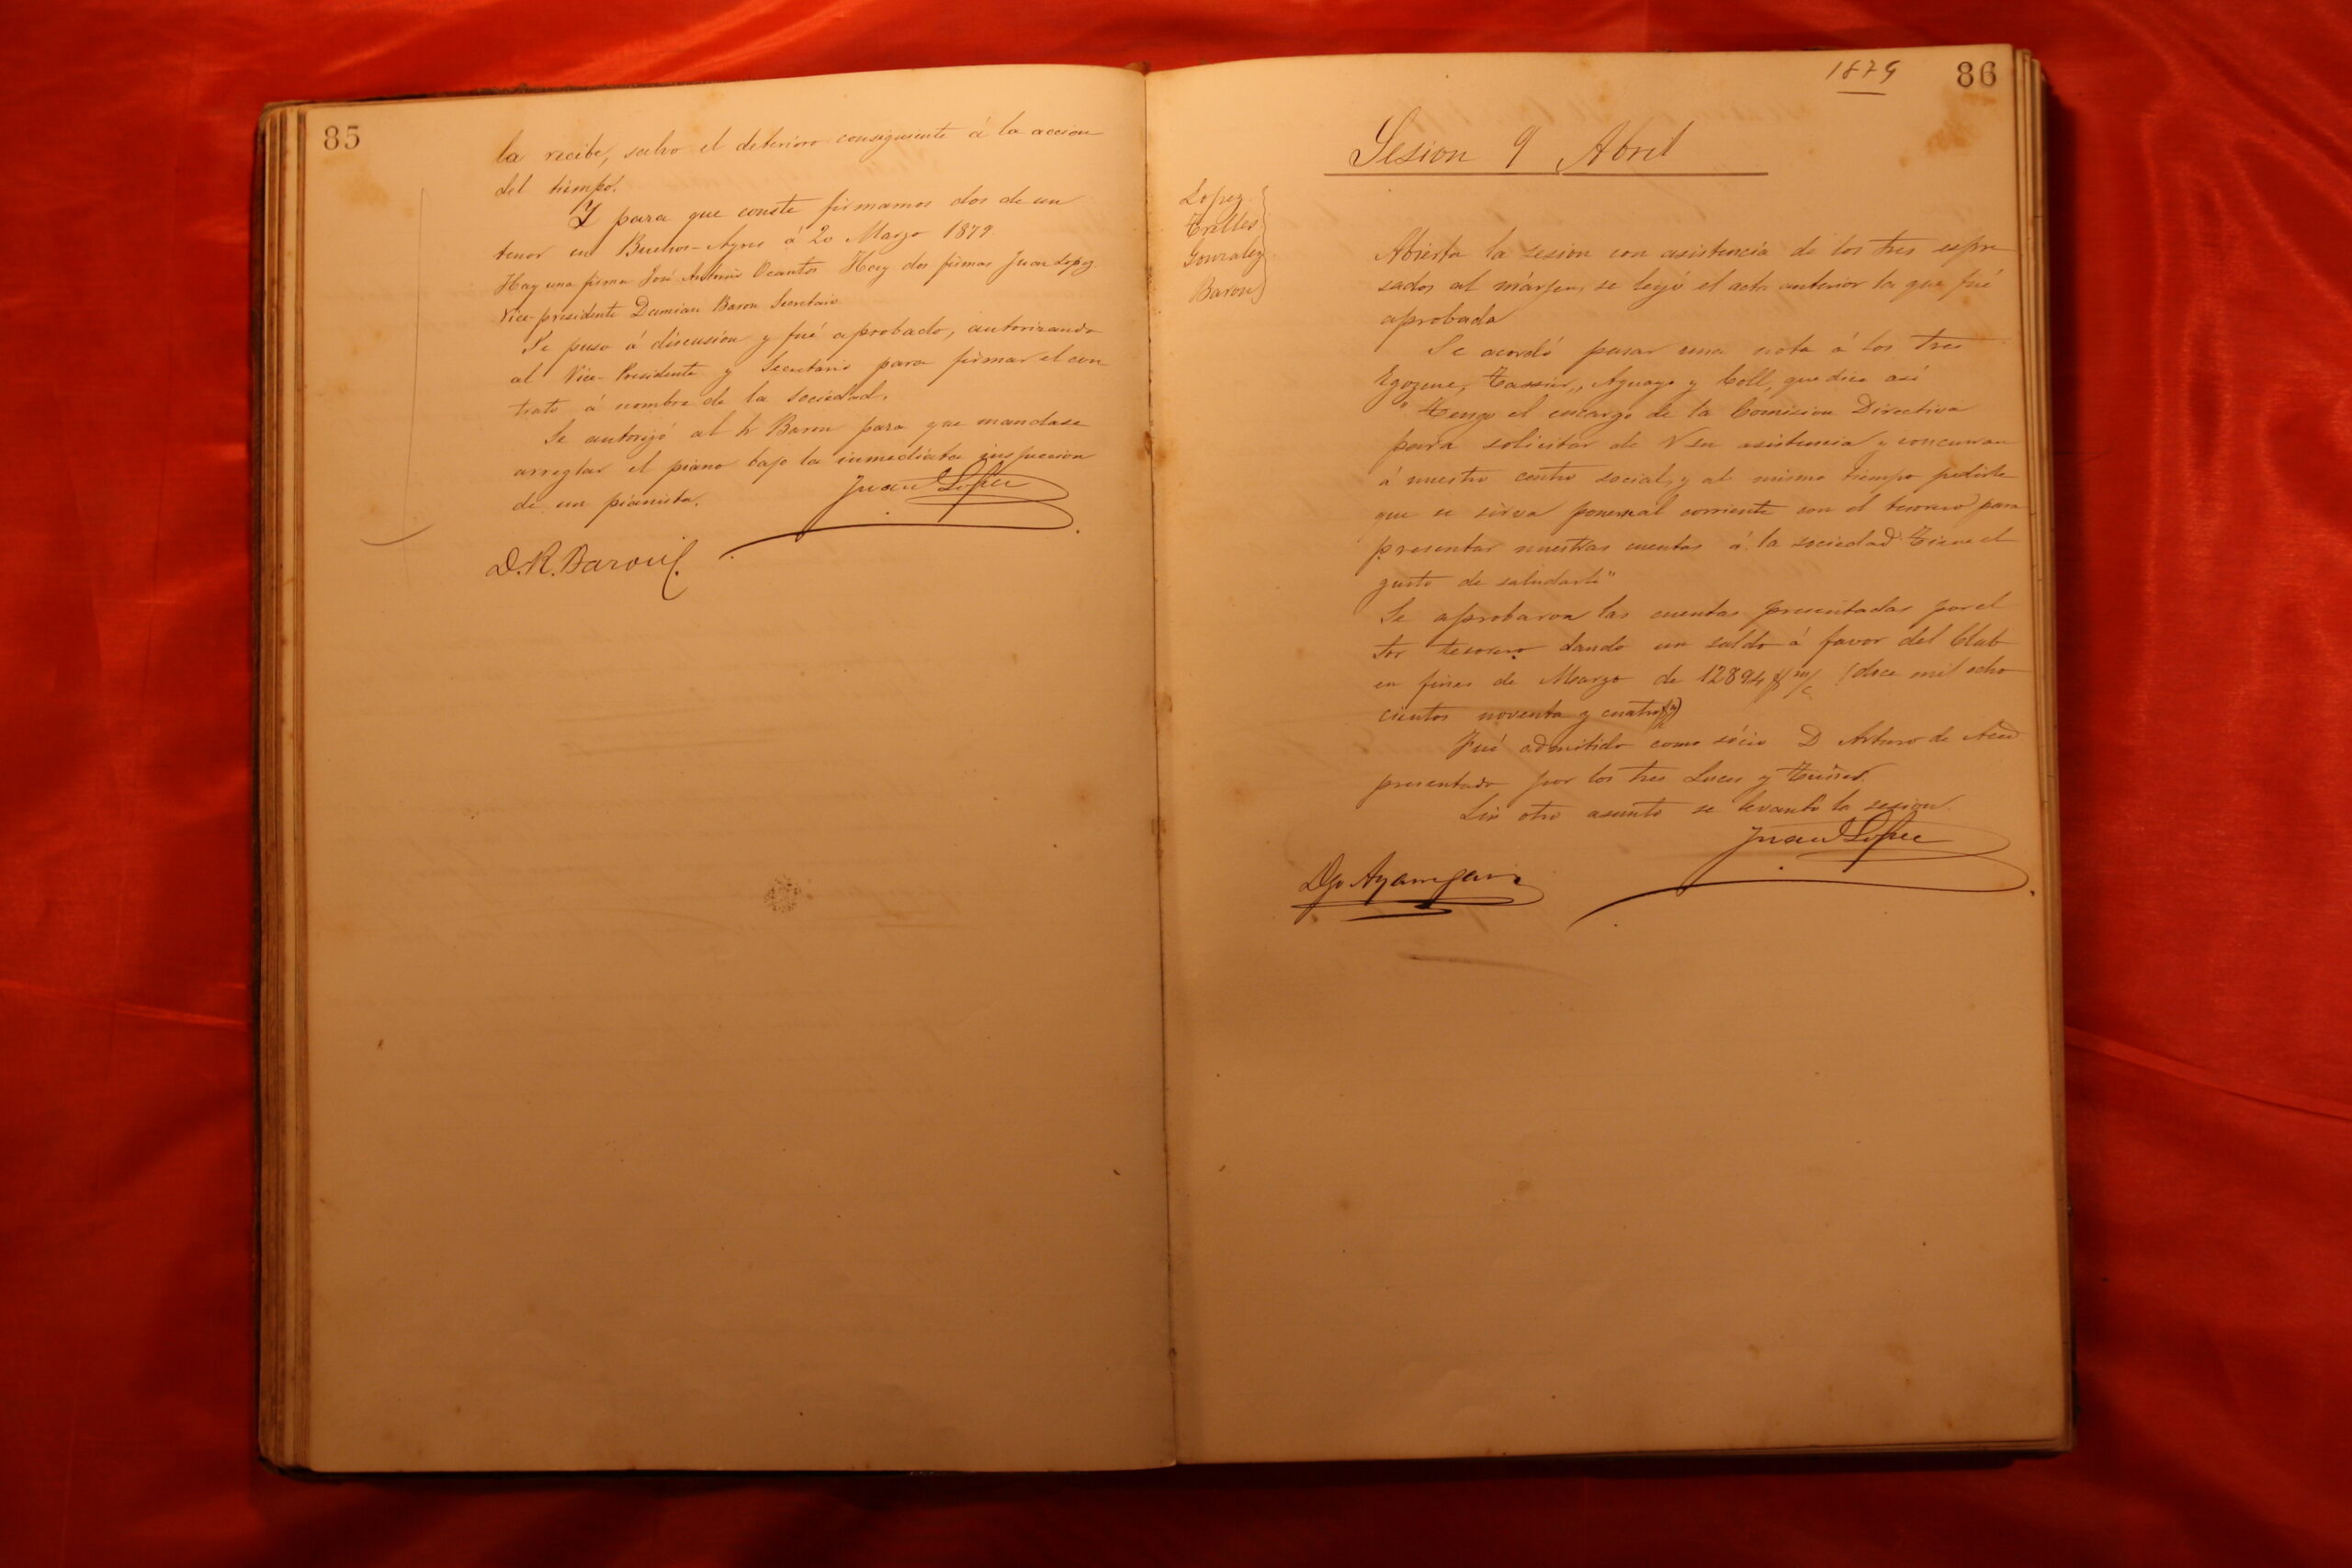 85
la recibe, salvo el deterioro consiguiente á la accion
del tiempo.
Y para que conste firmamos dos de un
tenor en Buenos-Ayres á 20 Marzo 1879.
Hay una firma José Antonio Ocantos Hay dos firmas Juan Lopez
Vice-presidente Damian Baron Secretario
Se puso á discusión y fué aprobado, autorizando
al Vice-Presidente y Secretario para firmar el con
trato á nombre de la sociedad.
Se autorizó al Sr Baron para que mandase
arreglar el piano bajo la inmediata inspeccion
de un pianista.
Juan Lopez
D. R. Baron
1879
86
Sesion 9 Abril
Lopez
Trelles
Gonzalez
Baron
Abierta la sesion con asistencia de los Sres espre
sados al márjen, se leyó el acta anterior la que fué
aprobada
Se acordó pasar una nota á los Sres
Egozcue, Tassier, Aguayo y Coll, que dice asi
"Tengo el encargo de la Comision Directiva
para solicitar de V su asistencia y concurran
á nuestro centro social, y al mismo tiempo pedirle
que se sirva ponerse al corriente con el tesorero para
presentar nuestras cuentas á la sociedad Tiene el
gusto de saludarle"
Se aprobaron las cuentas presentadas por el
Sor tesorero dando un saldo á favor del Club
en fines de Marzo de 12894 $ m/c (doce mil ocho
cientos noventa y cuatro
Fué admitido como sócio D Arturo de
presentado por los Sres Luces y
Sin otro asunto se levantó la sesion
Juan Lopez
Dgo